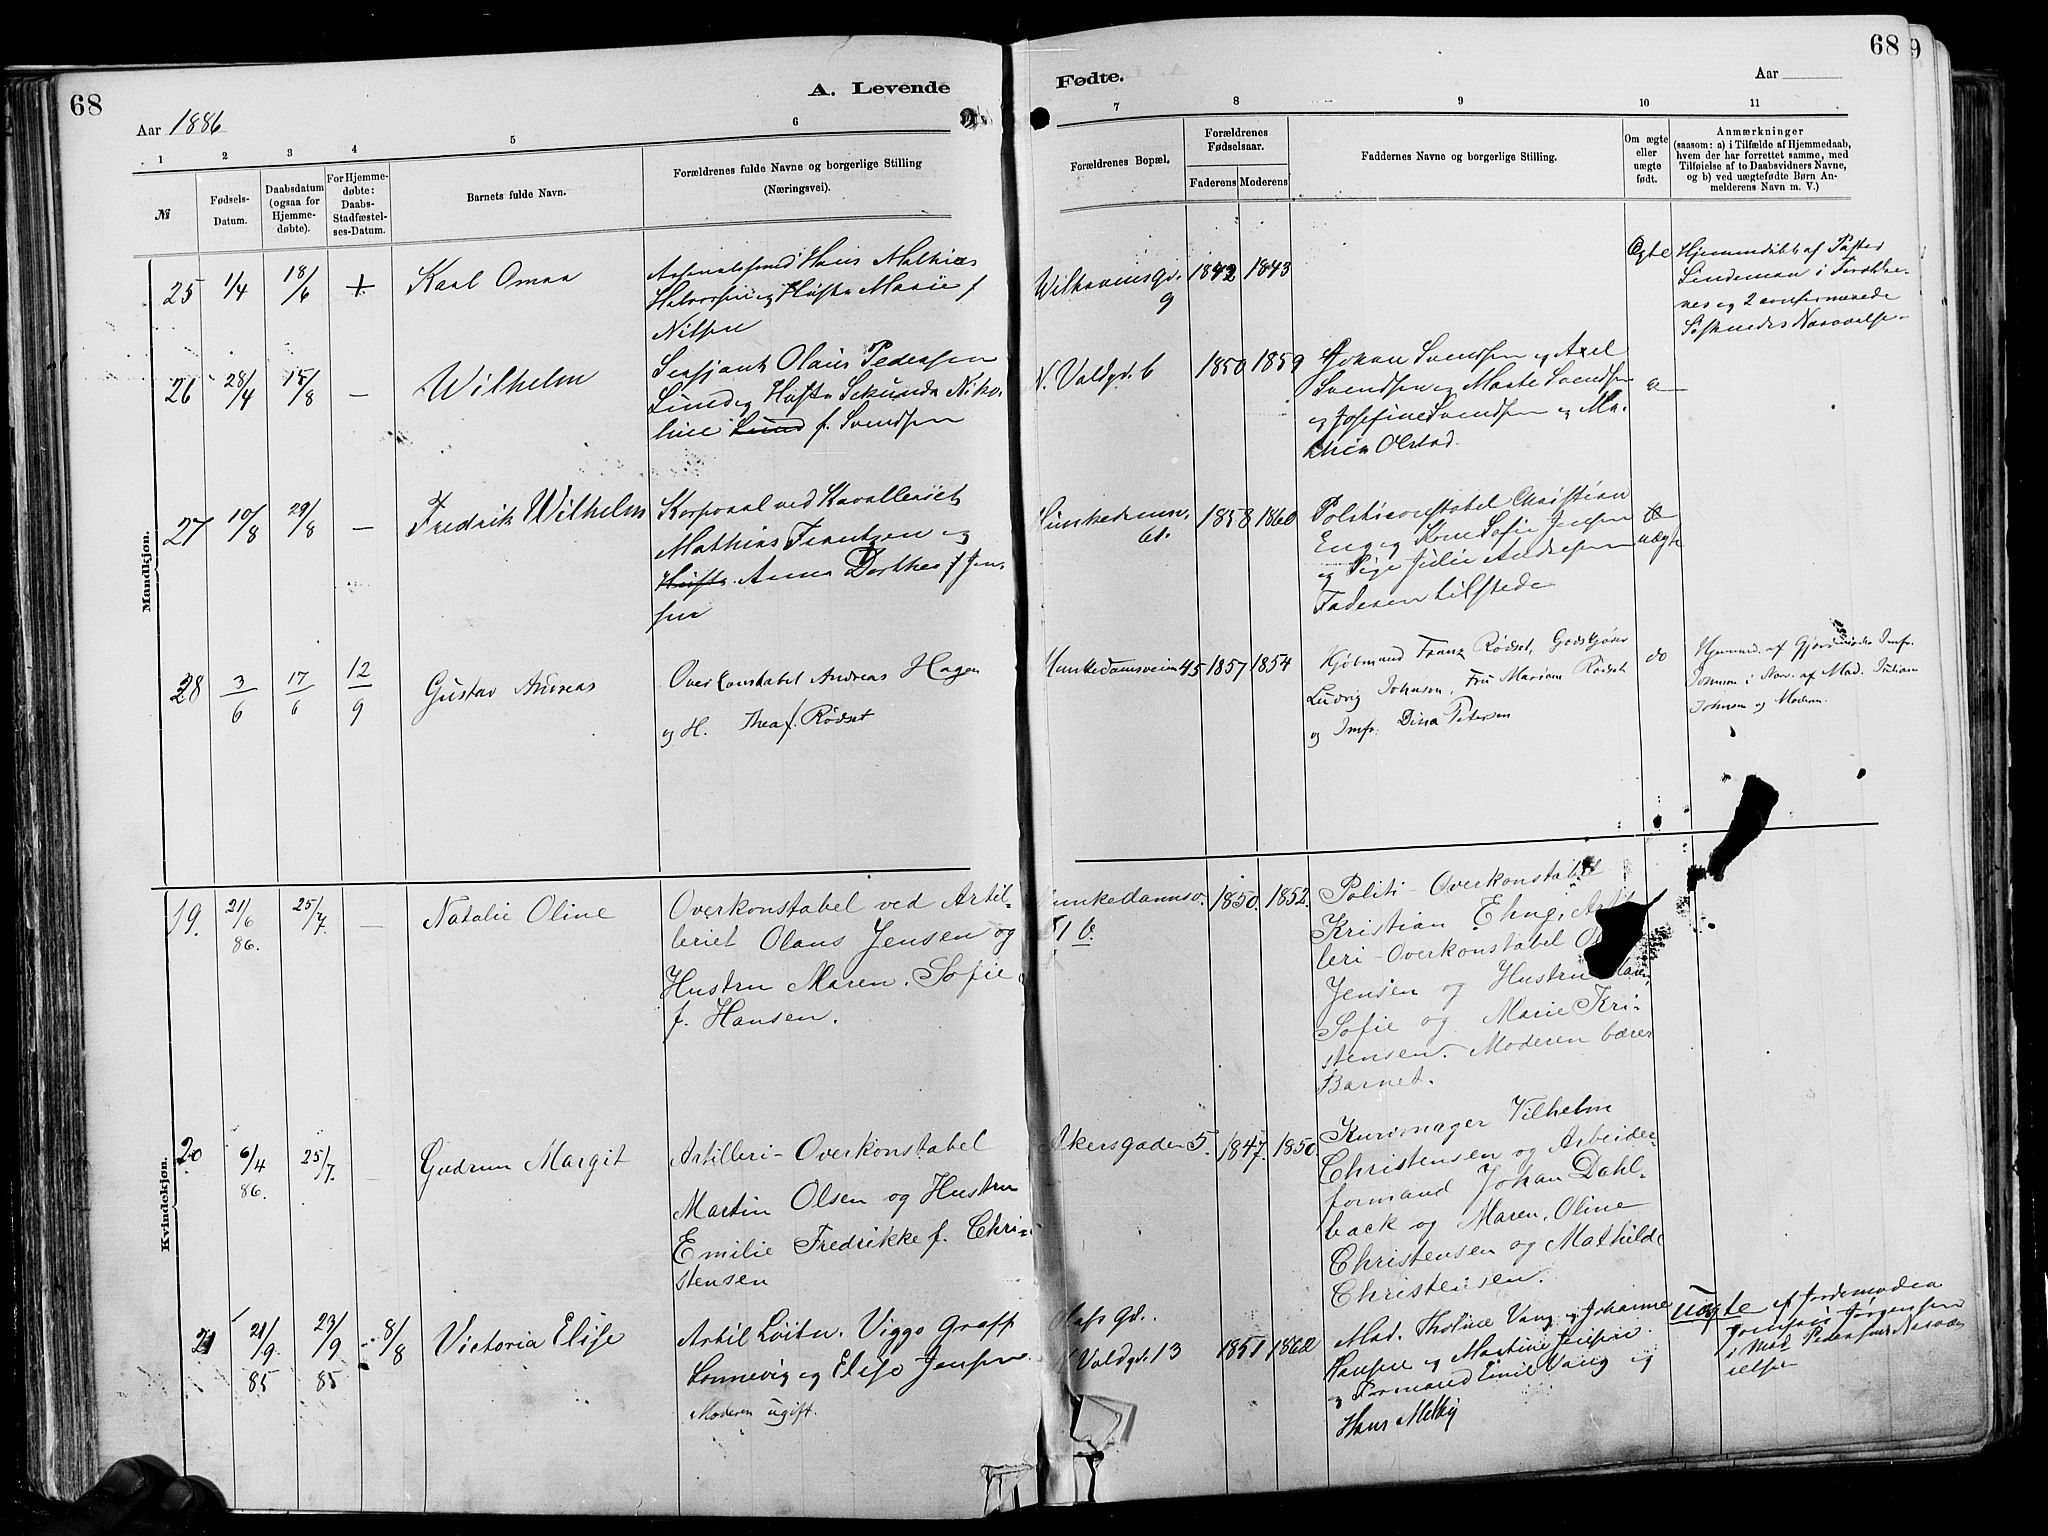 68
A. Levende
Aar 1886
1 2 3 4 5 6
№
Fødsels-
Datum.
Daabsdatum
(ogsaa for
Hjemme-
døbte).
For Hjemme-
døbte:
Daabs-
Stadfæstel-
ses-Datum.
Barnets fulde Navn.
Forældrenes fulde Navne og borgerlige Stilling
(Næringsvei).
Fødte.
68
9
Aar
7 8 9 10 11
Forældrenes Bopæl.
Forældrenes
Fødselsaar.
Faderens Moderens
Faddernes Navne og borgerlige Stilling.
Om ægte
eller
uægte
født.
Anmærkninger
(saasom: a) i Tilfælde af Hjemmedaab,
hvem der har forrettet samme, med
Tilføielse af to Daabsvidners Navne,
og b) ved uægtefødte Børn An-
melderens Navn m. V.)
Mandkjøn.
25 1/4 18/6 +
Karl Omar
Hans Mathias
Halvorsen og Hustr Marie f
Nilsen
9
1842 1843
Ægte
Hjemmedøbt af Pastor
Lindeman i Forældre-
nes og 2 confirmerede
Søskendes Nærværelse
26 28/4 15/8 –
Wilhelm
Sersjant Olaus Pedersen
Lund og Hustr Sekunda Niko-
line Lund f. Svendsen
N. Voldgd. 6
1850 1859
Johan Svendsen og Axel
Svendsen og Marte Svendsen
og Josefine Svendsen og Ma-
thia Olstad.
27 10/8 29/8 –
Fredrik Wilhelm
Korporal ved Kavalleriet
Mathias Frantzen og
Hustr. Anne Dorthea f Jen-
sen
61.
1858 1860
Politiconstabel Christian
Eng og Kone Sofie Jensen
og Pige Julie Andresen
Faderen tilstede
uægte
28 3/6 17/6 12/9
Gustav Andreas
Overkonstabel Andreas Hagen
og H. Thea f. Rødset
Munkedamsveien 45
1857 1854
Kjøbmand Franz Rødset, Godskjører
Ludvig Johnson, Fru Mariane Rødset
og Jmfr. Dina Petersen
do
Hjemmed. af Gjordmoder Jmfr.
Johnson i Nær. af Mad. Julian
Johnson og Moderen.
Kvindekjøn.
19. 21/6 86. 25/7. –
Natalie Oline
Overkonstabel ved Artil-
leriet Olaus Jensen og
Hustru Maren Sofie
f. Hansen.
Munkedamsv.
51 b.
1850. 1852.
Politi-Overkonstabel
Kristian Eng, Artil
leri-Overkonstabel
Jensen og Hustru Maren
Sofie og Marie Kri-
stensen. Moderen bærer
Barnet.
20 6/4 86. 25/7. –
Gudrun Margit
Artilleri-Overkonstabel
Martin Olsen og Hustru
Emilie Fredrikke f. Chri-
stensen
Akersgaden 5.
1847. 1850.
Kurvmager Vilhelm
Christensen og Arbeider-
formand Johan Dahl-
back og Maren Oline
Christensen og Mathilde
Christensen.
21 21/9 85 23/9 85 8/8
Victoria Elise
Artil Løitn. Viggo Graff
Lonnevig og Elise Jensen
Moderen ugift.
Olafs Gd.
N Voldgd. 13
1851 1862
Mad. Tholine Vang og Johanne
Hansen og Martine Jensen
og Formand Emil Vang og
Hans Melby
Uægte
af Jordemoder
Jomfru Jørgensen
i Mad Pedersens Nærvæ
relse